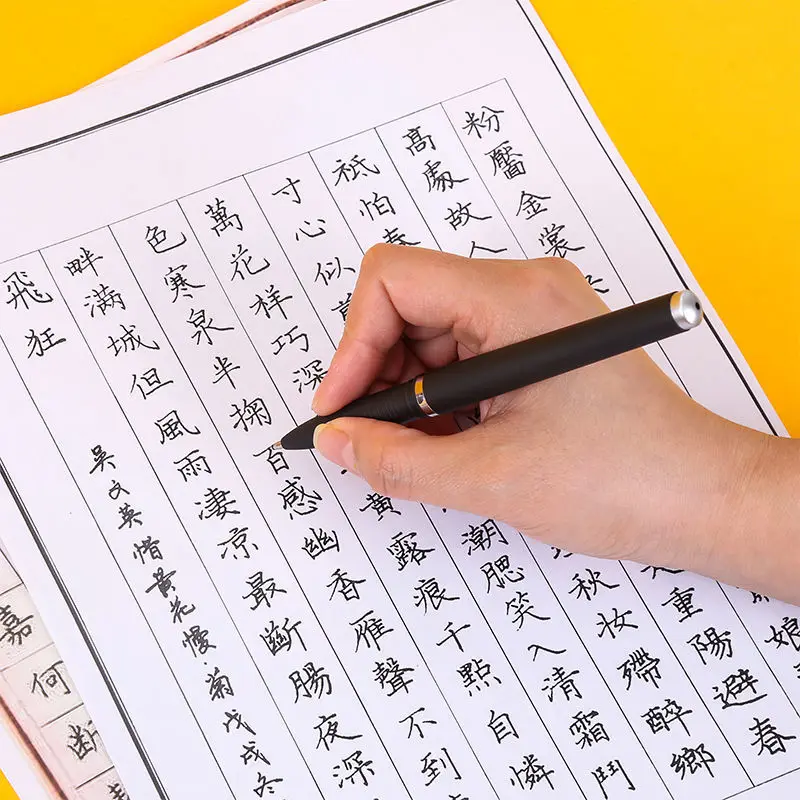 粉靨金裳 娘
高處故人 重陽避春
祇怕春 秋妝殢醉鄉
寸心似翦 潮腮笑入清霜鬥
萬花樣巧深 黃露痕千點自憐
色寒泉半掬百感幽香雁聲不到
畔滿城但風雨淒涼最斷腸夜深
飛狂
吳文英惜黃花慢·菊戊戌冬
嘉
何
斷